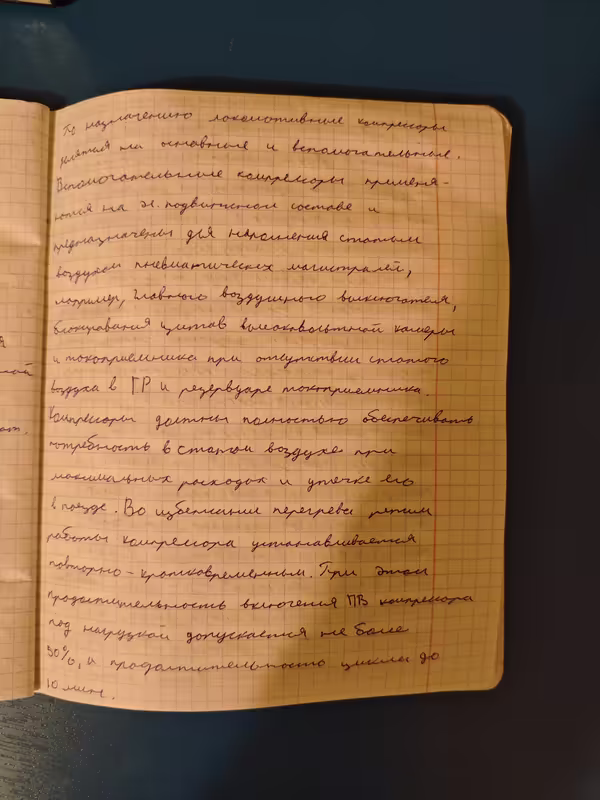 По назначению локомотивные компрессоры
делятся на основные и вспомогательные.
Вспомогательные компрессоры применя-
ются на э. подвижном составе и
предназначены для наполнения сжатым
воздухом пневматических магистралей,
например, главного воздушного выключателя,
блокирования щитов высоковольтной камеры
и токоприемника при отсутствии сжатого
воздуха в ГР и резервуаре токоприемника.
Компрессоры должны полностью обеспечивать
потребность в сжатом воздухе при
максимальных расходах и утечке его
в поезде. Во избежании перегрева режим
работы компрессора устанавливается
повторно-кратковременным. При этом
продолжительность включения ПВ компрессора
под нагрузкой допускается не более
50%, а продолжительность цикла до
10 мин.
й